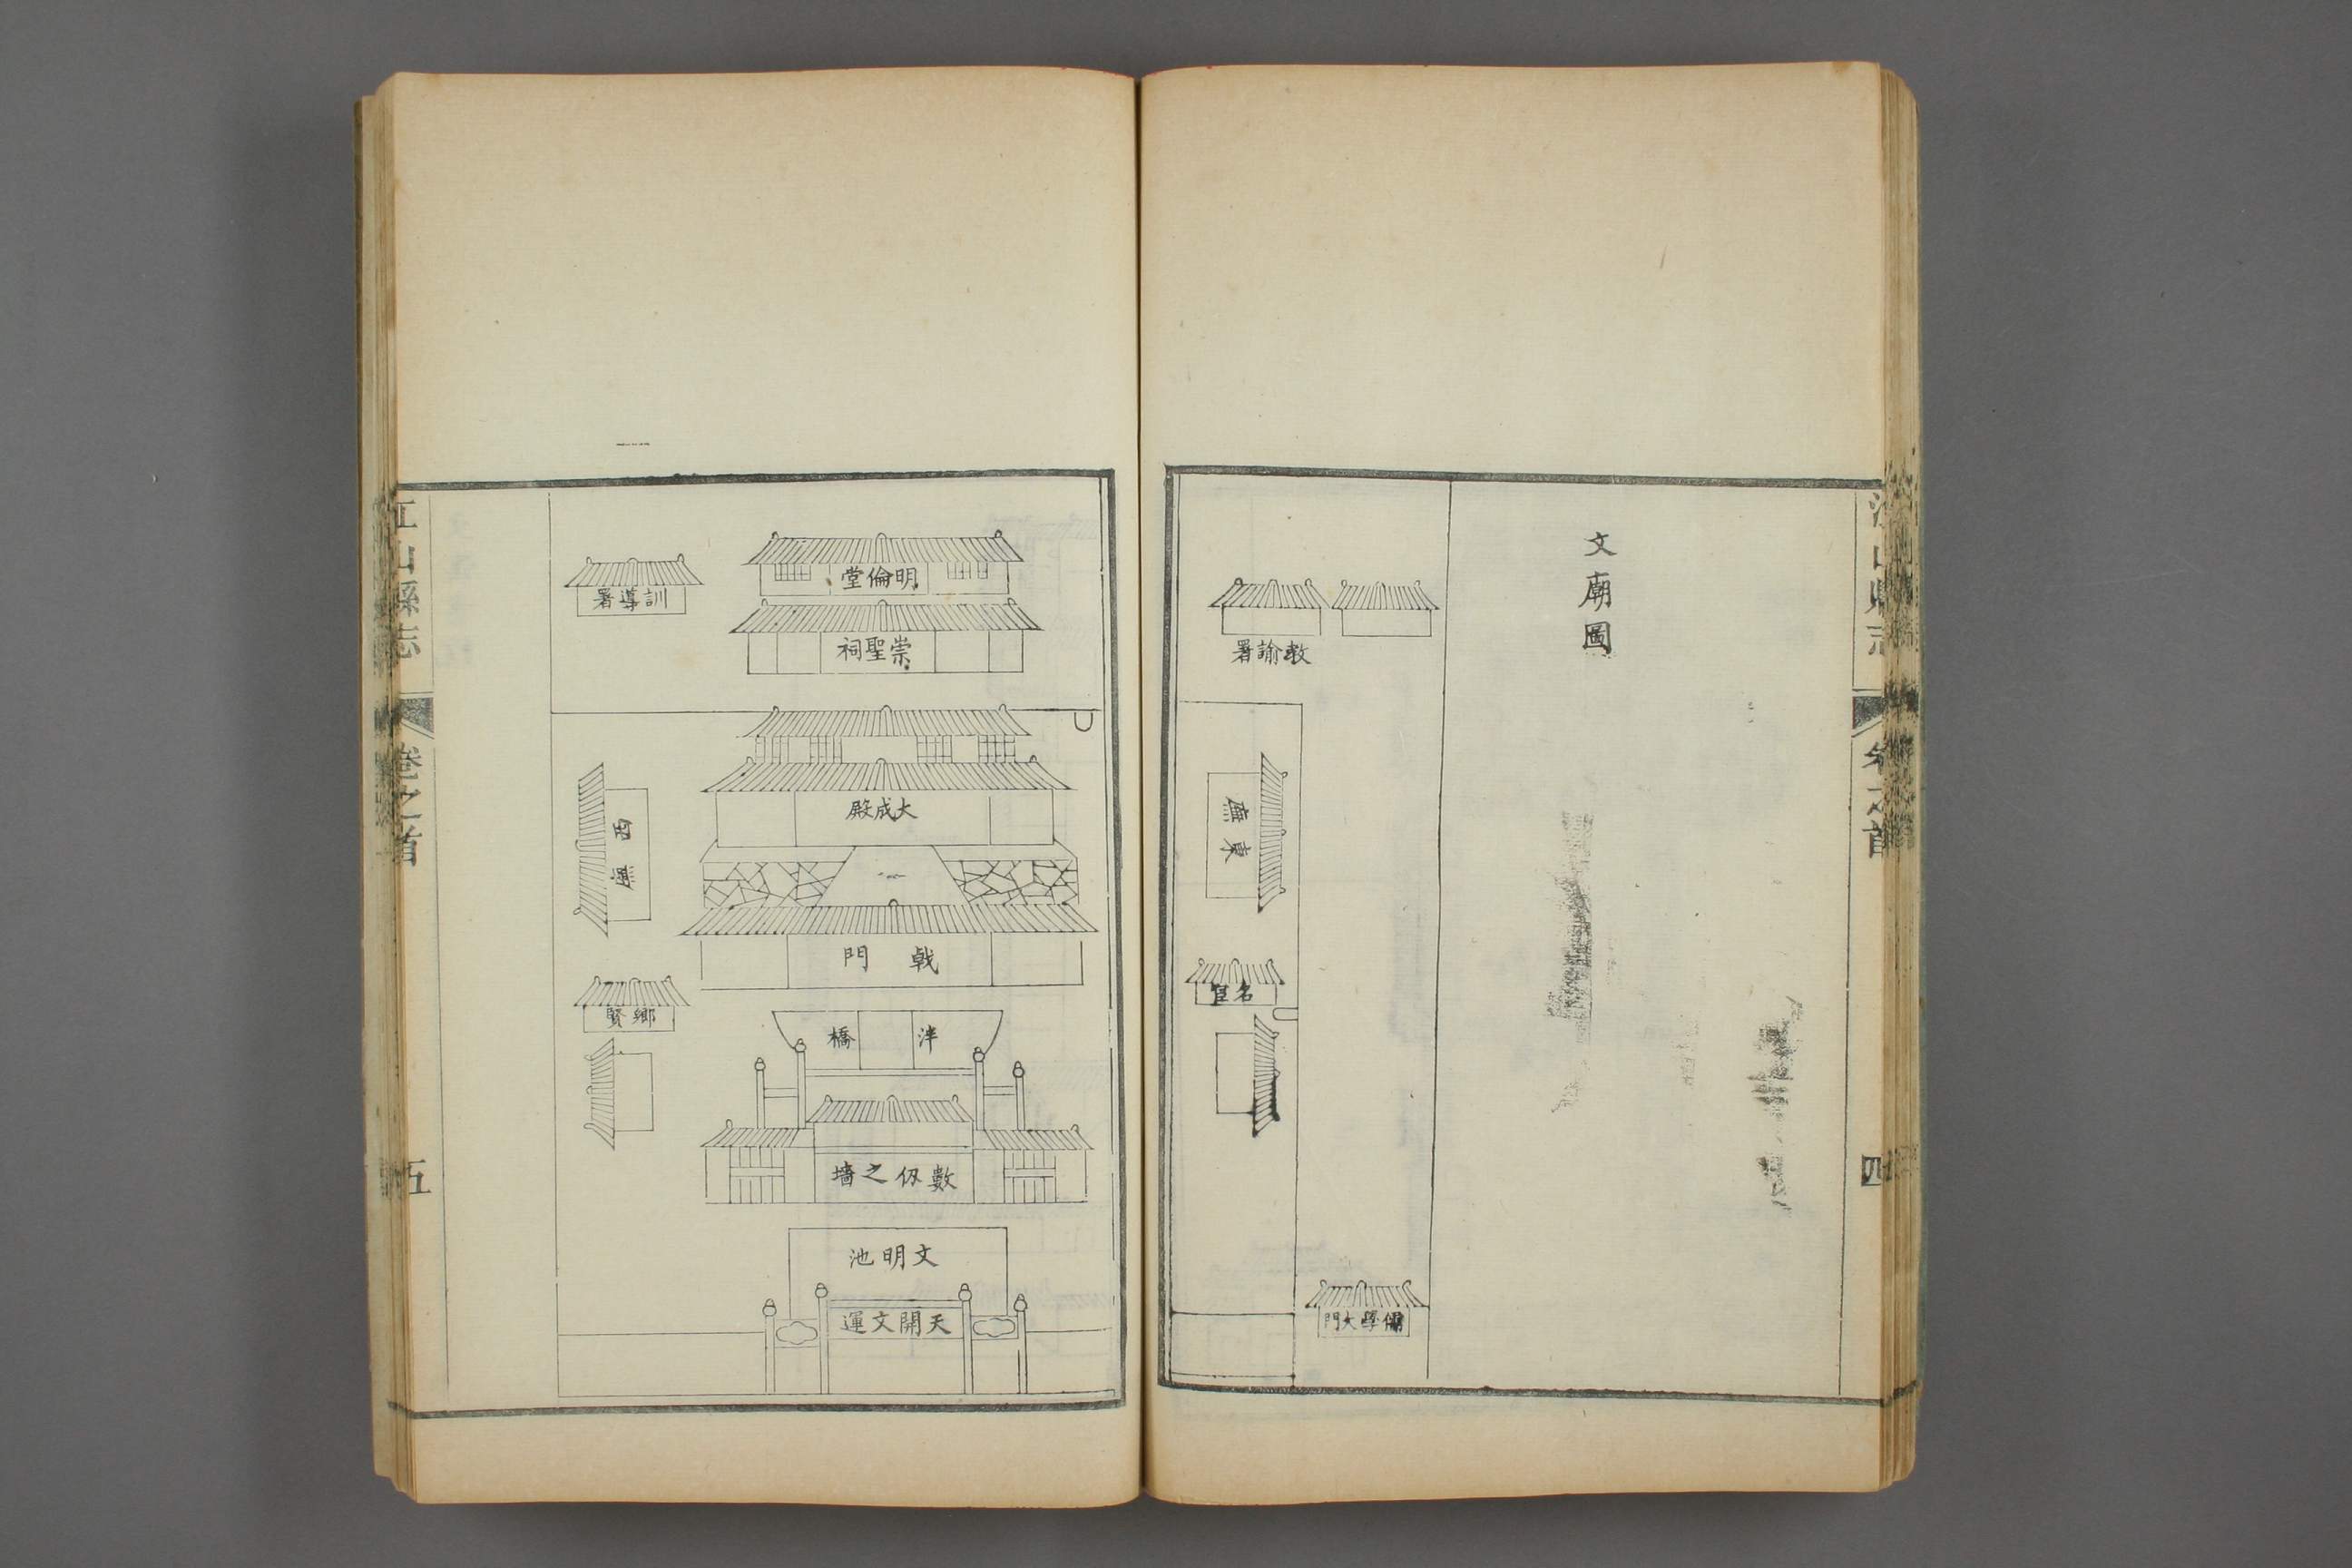 江山縣志
卷之首
四
文廟圖
教諭署
東廡
名宦
儒學大門
明倫堂
訓導署
崇聖祠
大成殿
西廡
戟門
鄉賢
泮橋
數仞之墻
文明池
天開文運
江山縣志
卷之首
五